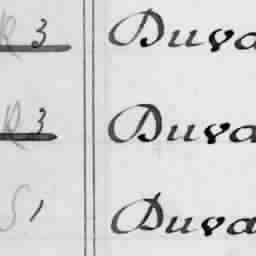 R 3 Duva
R 3 Duva
S 1 Duva